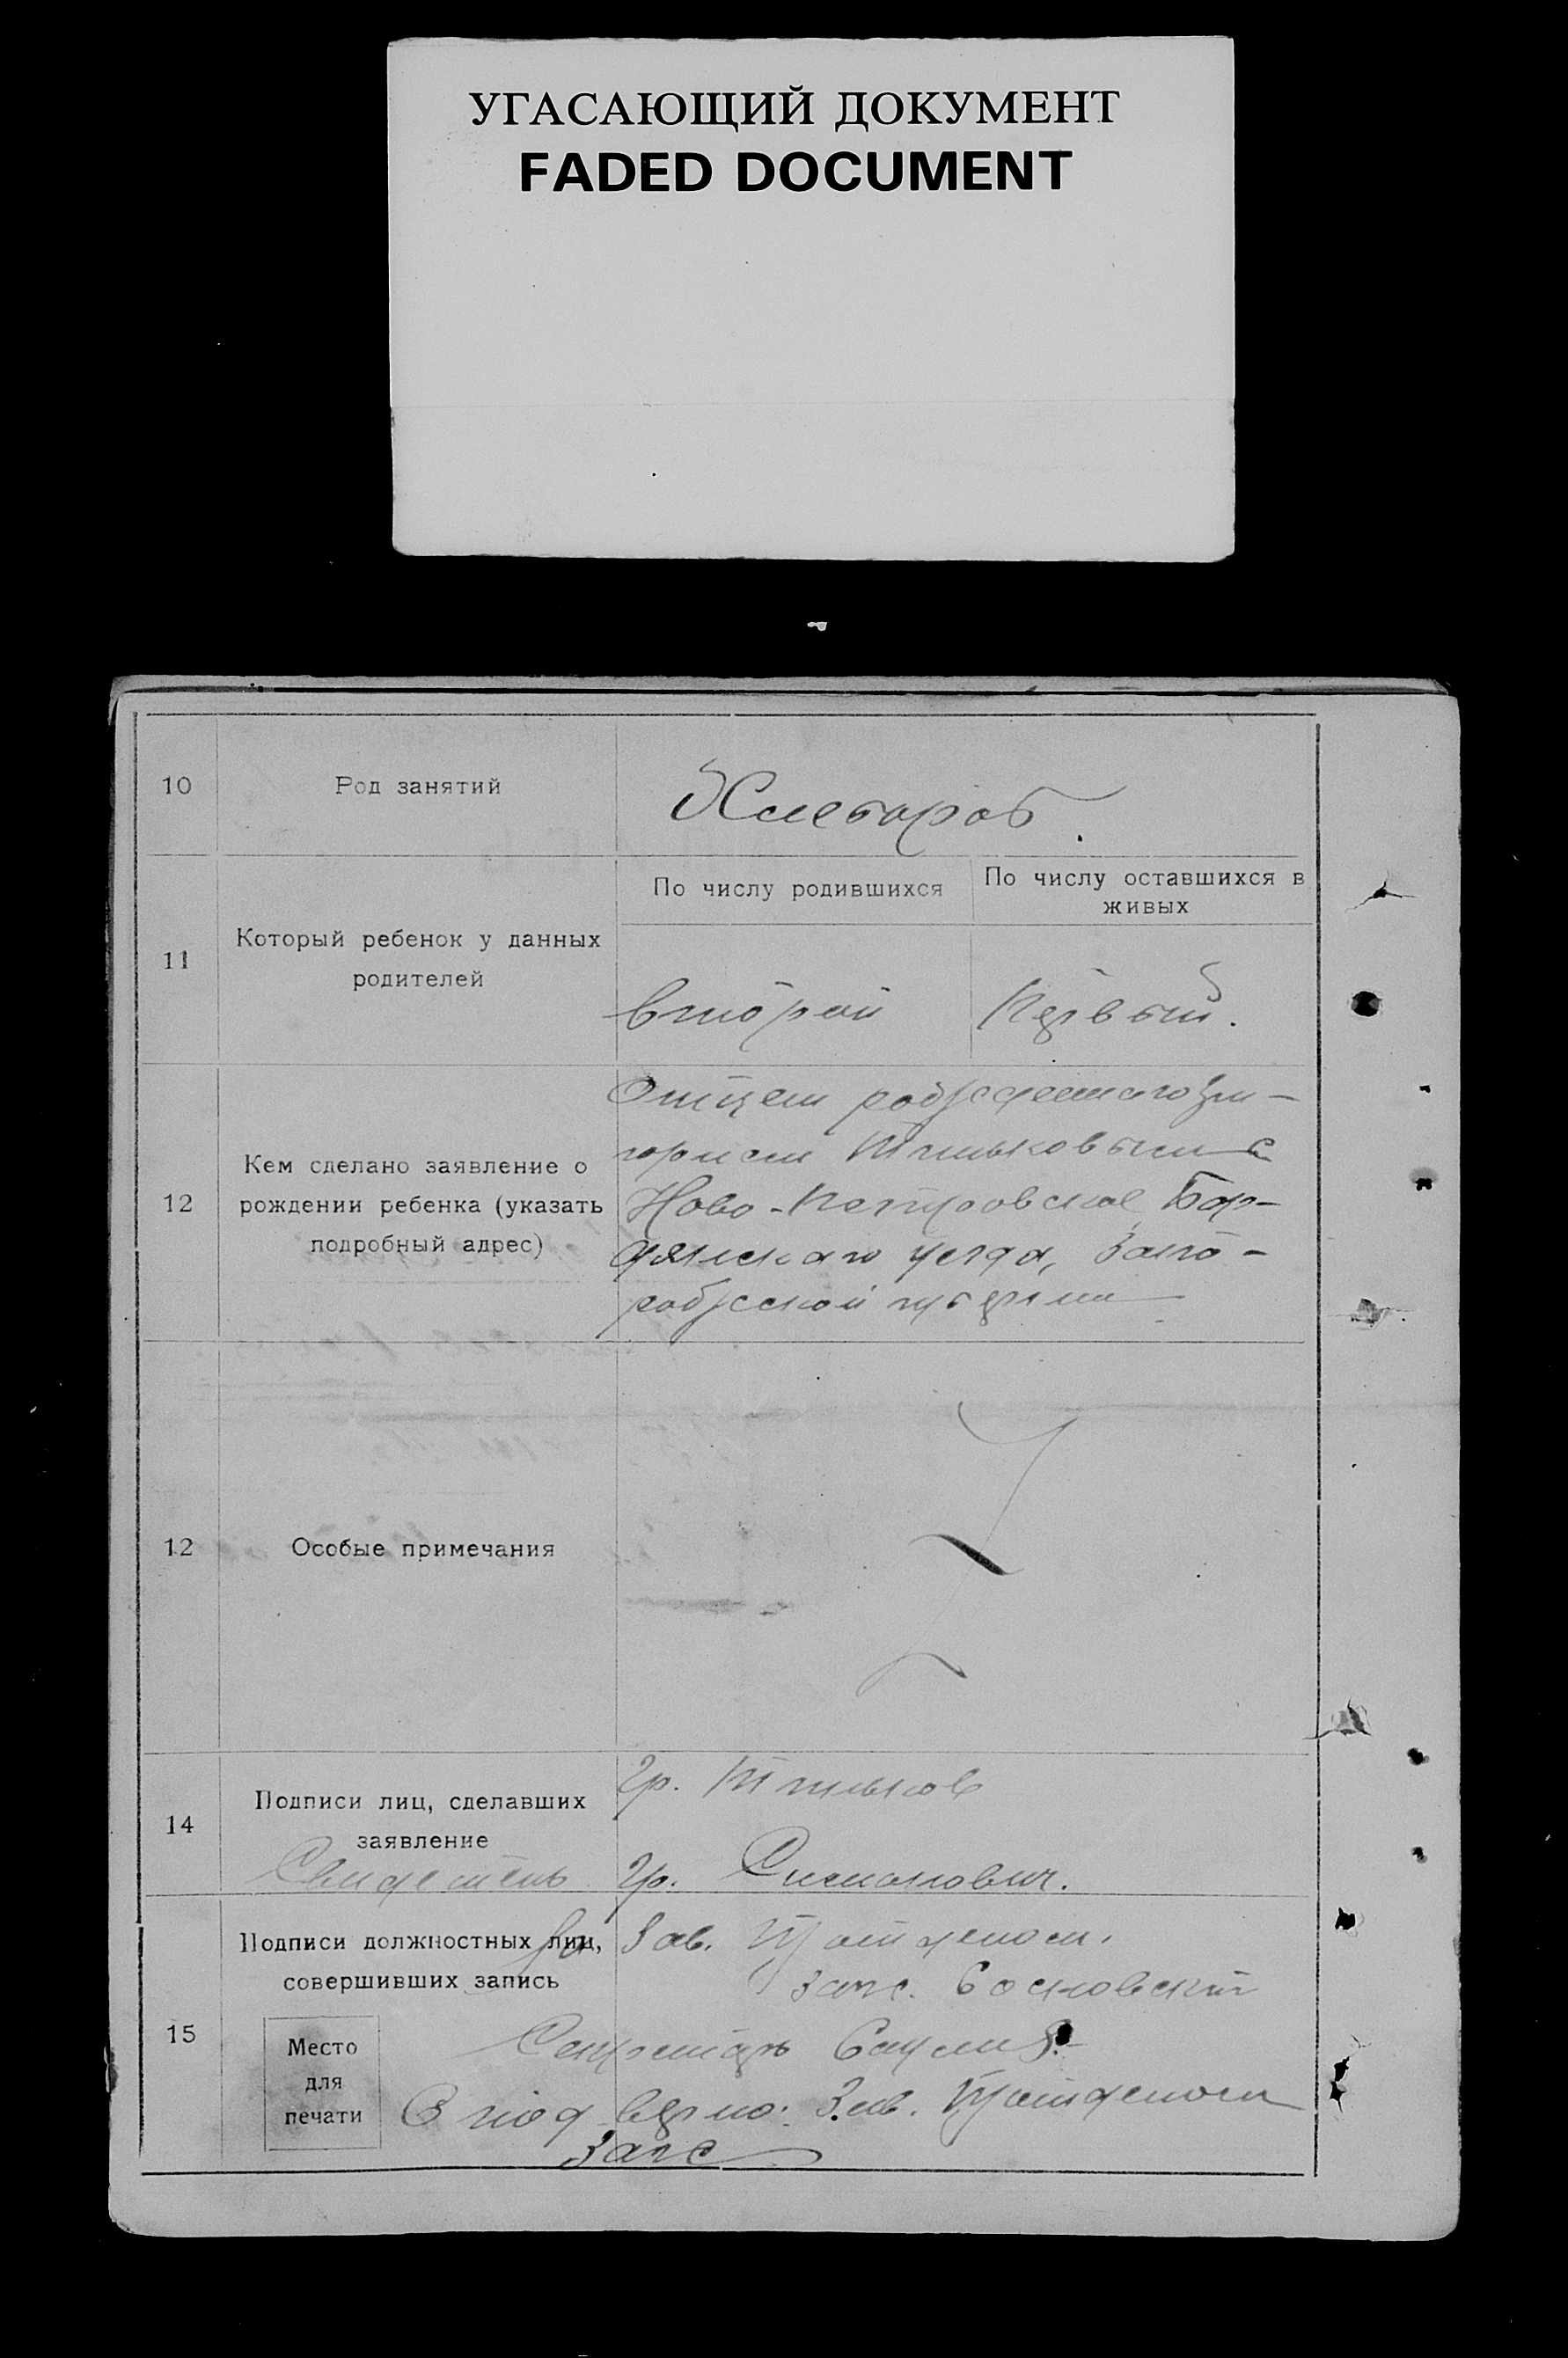 УГАСАЮЩИЙ ДОКУМЕНТ
FADED DOCUMENT
10 Род занятий Хлебороб.
По числу родившихся По числу оставшихся в живых
11 Который ребенок у данных родителей
второй Первый.
12 Кем сделано заявление о рождении ребенка (указать подробный адрес)
Отцем
с
Ново-Петровское Бер-
дянскаго уезда, Запо-
рожской губернии
12 Особые примечания
14 Подписи лиц, сделавших заявление
гр.
Свидетель гр. Симанович.
15 Подписи должностных лиц, совершивших запись
Зав.
загс. Сосновский
Секретарь
Место
для
печати
верно: Зав.
Загс